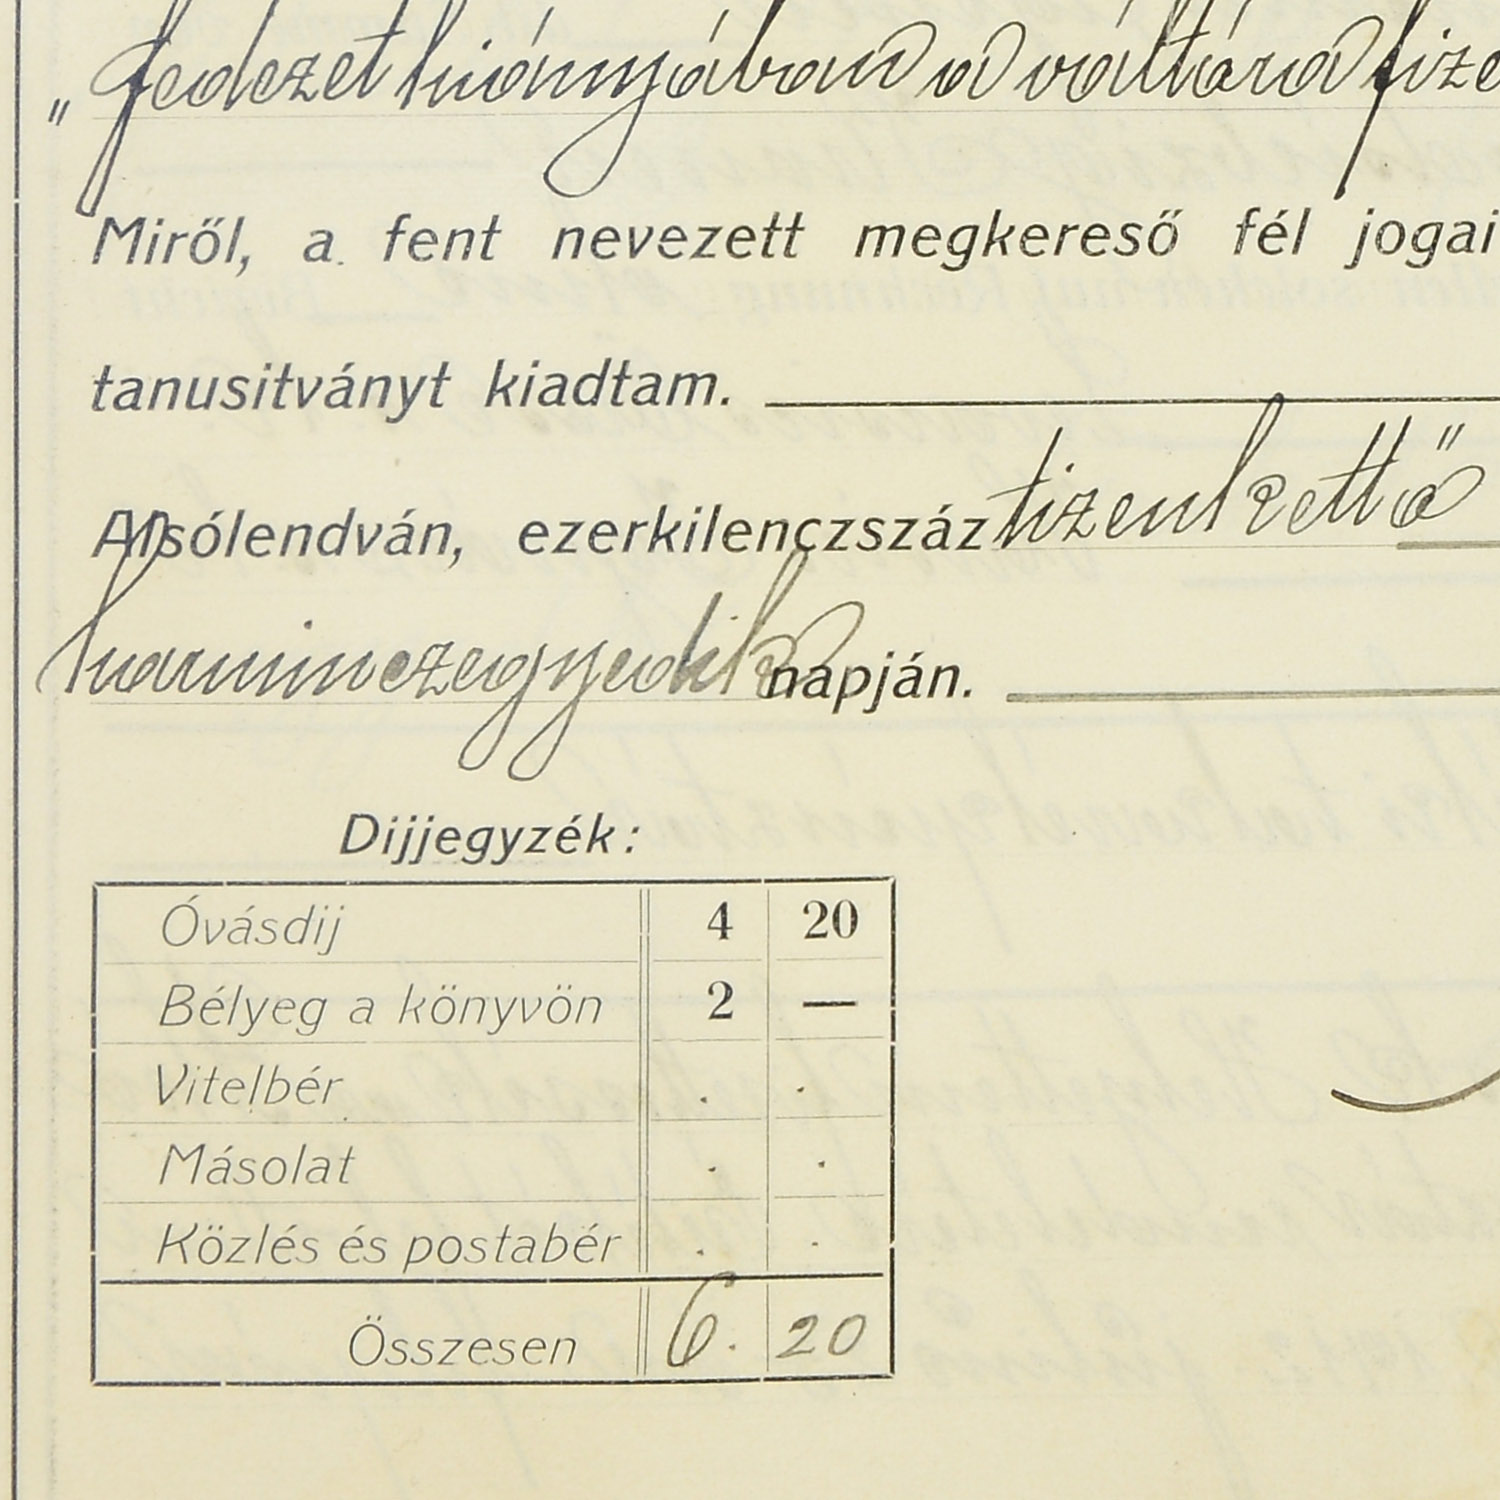 „fedezet hiányában a váltóra fize
Miről, a fent nevezett megkereső fél jogai
tanusitványt kiadtam.
Alsólendván, ezerkilenczszáztizenkettő
harminczegyedik napján.
Dijjegyzék:
Óvásdij 4 20
Bélyeg a könyvön 2 —
Vitelbér . .
Másolat . .
Közlés és postabér . .
Összesen 6. 20